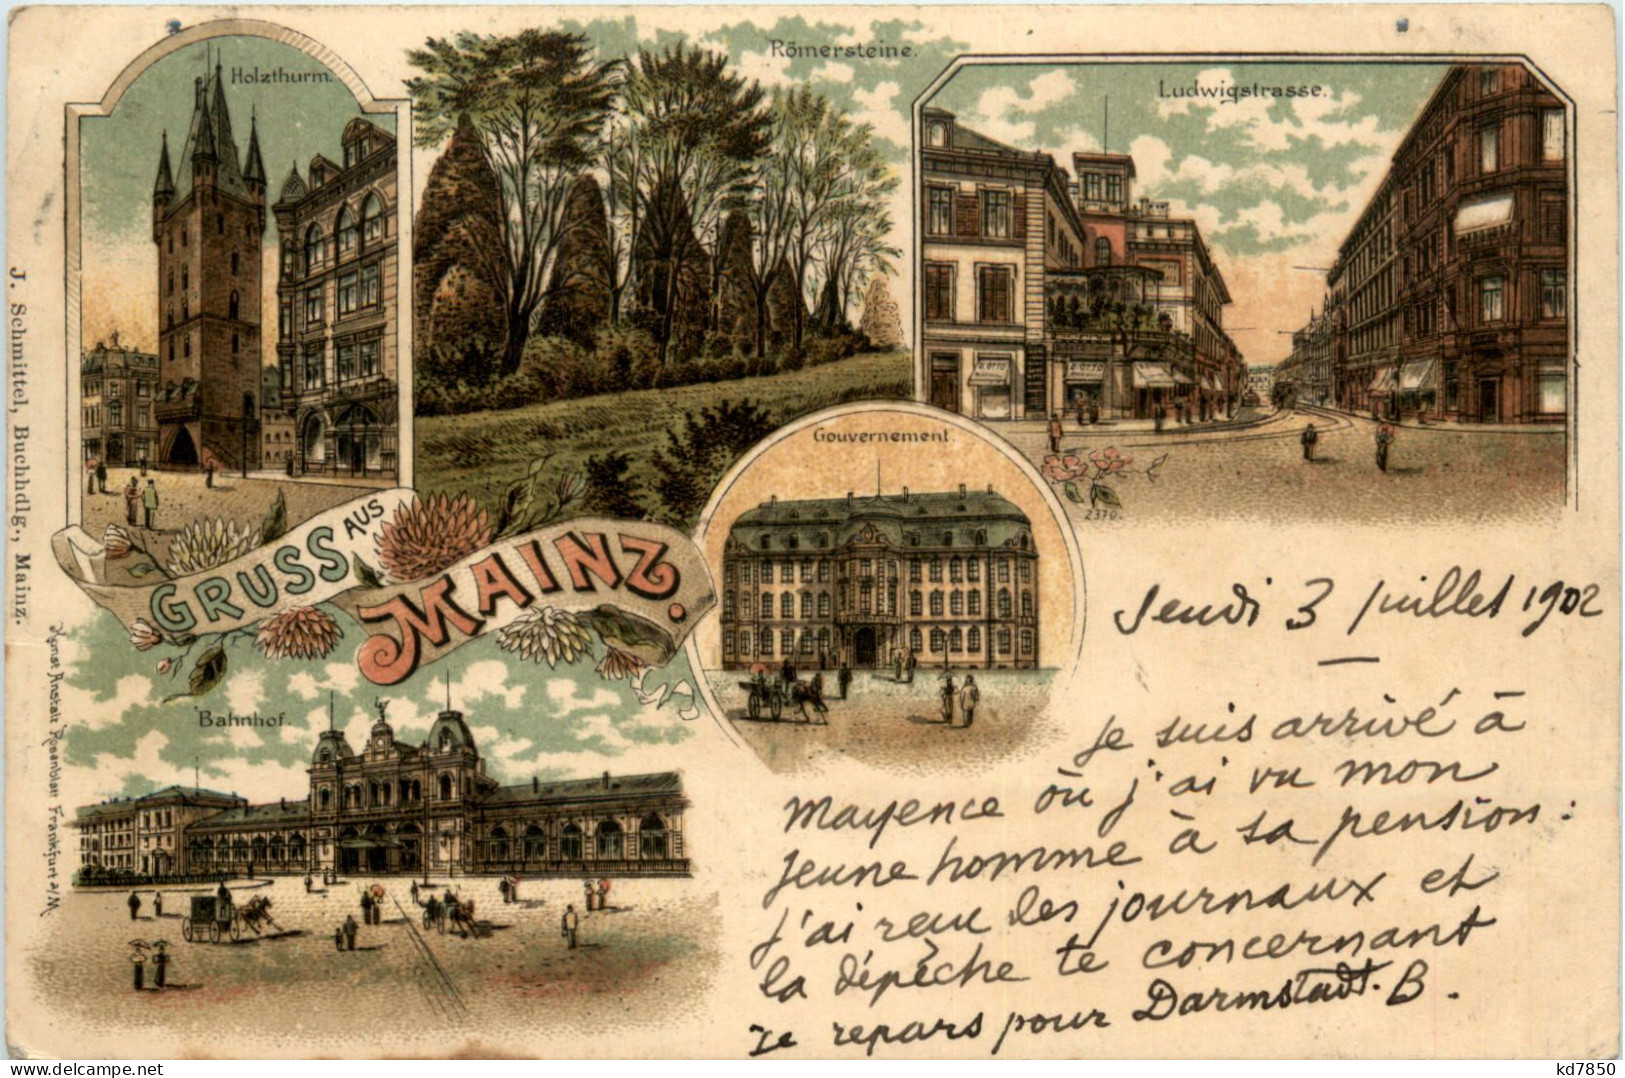 Holzthurm.
Römersteine.
Ludwigstrasse.
G. OTTO
Gouvernement.
2370.
GRUSS AUS
MAINZ.
Bahnhof.
J. Schmittel, Buchhdlg., Mainz.
Kunst Anstalt Rosenblatt Frankfurt a/M
Jeudi 3 juillet 1902
Je suis arrivé à
Mayence où j'ai vu mon
jeune homme à sa pension :
j'ai reçu les journaux et
la dépêche te concernant
Je repars pour Darmstadt. B.
kd7850